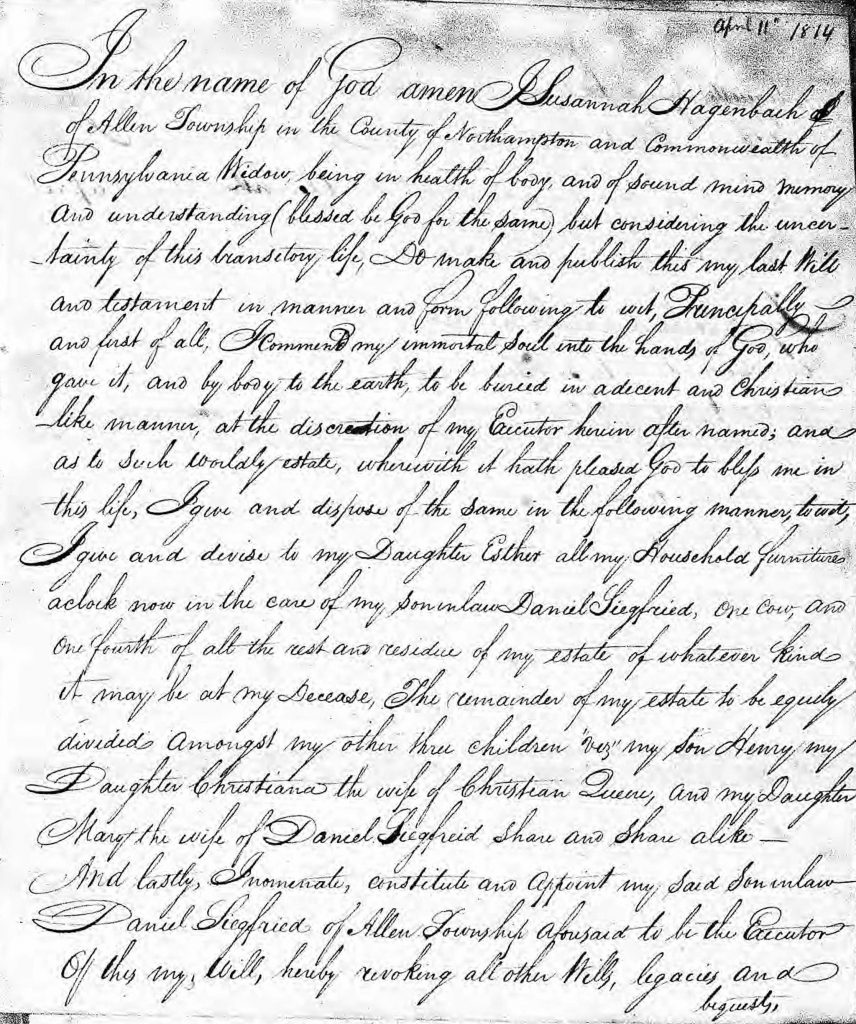 April 11th 1814
In the name of God amen I Susannah Hagenbach of
of Allen Township in the County of Northampton and Commonwealth of
Pennsylvania Widow, being in health of body, and of sound mind memory
and understanding (blessed be God for the same) but considering the uncer-
-tainty of this transetory life, Do make and publish this my last Will
and testament in manner and form following to wit, Principally
and first of all, I commend my immortal Soul into the hands of God, who
gave it, and by body to the earth, to be buried in a decent and Christian
-like manner, at the discreation of my Executor herein after named; and
as to such worldly estate, wherewith it hath pleased God to bless me in
this life, I give and dispose of the same in the following manner, to wit,
I give and devise to my Daughter Esther all my Household furniture
a clock now in the care of my son inlaw Daniel Siegfried, one cow, and
one fourth of all the rest and residue of my estate of whatever kind
it may be at my Decease, The remainder of my estate to be equily
divided amongst my other three children "vez" my Son Henry, my
Daughter Christiana the wife of Christian Queere, and my Daughter
Mary the wife of Daniel Siegfreid Share and Share alike —
And lastly, I nomenate, constitute and appoint my said Son inlaw
Daniel Siegfried of Allen Township aforesaid to be the Executor
Of this my, Will, hereby revoking all other Wills, legacies and
bequests,